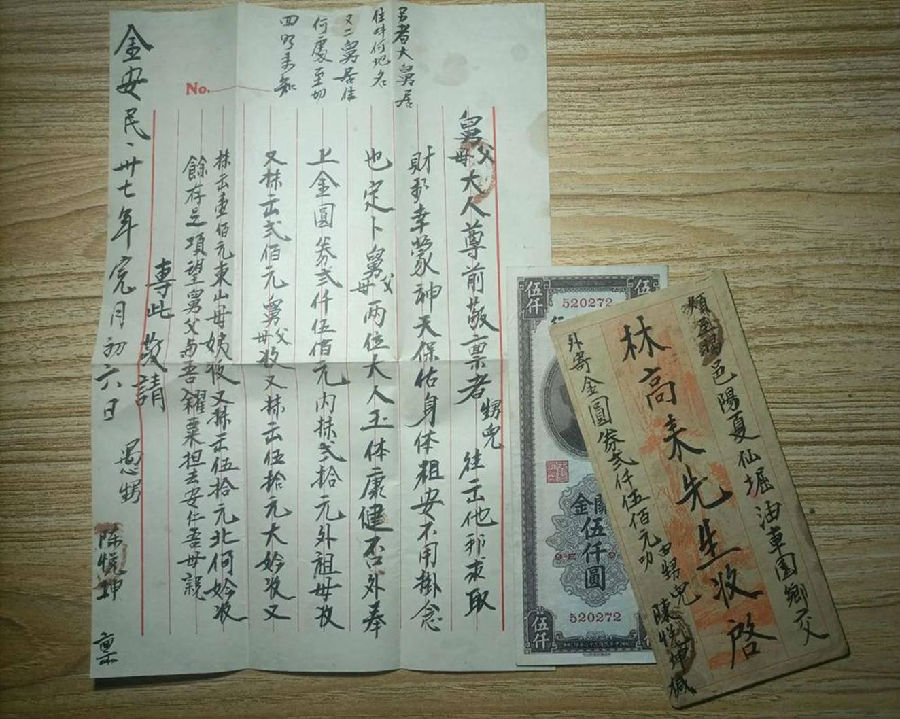 舅父母大人尊前敬稟者甥兒往出他邦求取
財利幸蒙神天保佑身体粗安不用掛念
也定卜舅父母兩位大人玉体康健否外奉
上金圓券弍仟伍佰元內抹弍拾元外祖母收
又抹出弍佰元舅父母收又抹出伍拾元大妗收又
抹出壹佰元東山母姨收又抹出伍拾元北何妗收
餘存是項望舅父與吾糴粟担去安仔吾母親
專此敬請
金安民、卅七年完月初六日 愚甥 陳悅坤 稟
另者大舅居
住外何地名
又二舅居住
何處至切
回明來知
No.
伍仟
520272
金
伍仟圓
520272
伍仟
邑陽夏仙堀油車園鄉交
林高未先生收啓
外寄金圓券弍仟伍佰元
甥兒 陳悅坤緘